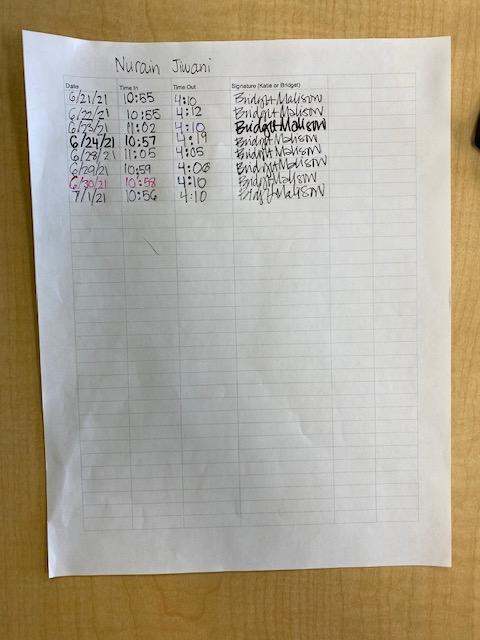 Nurain Jiwani
Date Time In Time Out Signature (Katie or Bridget)
6/21/21 10:55 4:10 Bridget Malison
6/22/21 10:55 4:12 Bridget Malison
6/23/21 11:02 4:10 Bridget Malison
6/24/21 10:57 4:19 Bridget Malison
6/28/21 11:05 4:05 Bridget Malison
6/29/21 10:59 4:06 Bridget Malison
6/30/21 10:58 4:10 Bridget Malison
7/1/21 10:56 4:10 Bridget Malison